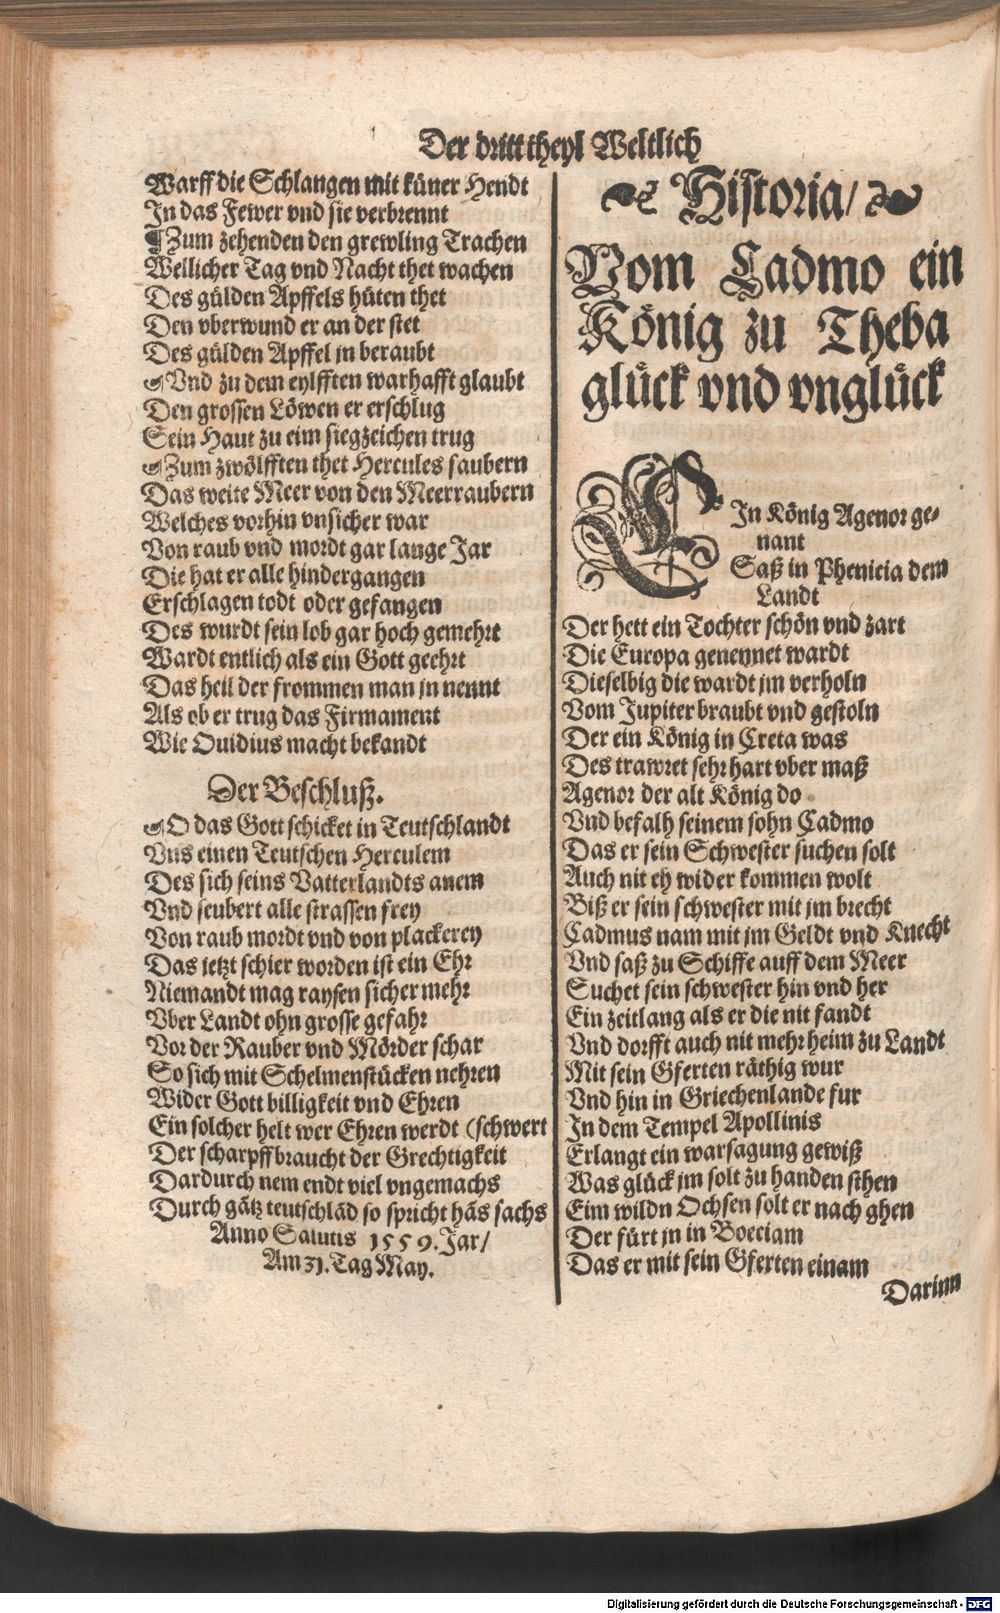 Der dritt theyl Weltlich
Warff die Schlangen mit küner Hendt
In das Fewer vnd sie verbrennt
¶ Zum zehenden den grewling Trachen
Wellicher Tag vnd Nacht thet wachen
Des gülden Apffels hüten thet
Den vberwund er an der stet
Des gülden Apffel jn beraubt
☙ Vnd zu dem eylfften warhafft glaubt
Den grossen Löwen er erschlug
Sein Haut zu eim siegzeichen trug
☙ Zum zwölfften thet Hercules saubern
Das weite Meer von den Meerraubern
Welches vorhin vnsicher war
Von raub vnd mordt gar lange Jar
Die hat er alle hindergangen
Erschlagen todt oder gefangen
Des wurdt sein lob gar hoch gemehrt
Wardt entlich als ein Gott geehrt
Das heil der frommen man jn nennt
Als ob er trug das Firmament
Wie Ouidius macht bekandt
Der Beschluß.
☙ O das Gott schicket in Teutschlandt
Vns einen Teutschen Herculem
Des sich seins Vatterlandts anem
Vnd seubert alle strassen frey
Von raub mordt vnd von plackerey
Das jetzt schier worden ist ein Ehr
Niemandt mag raysen sicher mehr
Vber Landt ohn grosse gefahr
Vor der Rauber vnd Mörder schar
So sich mit Schelmenstücken nehren
Wider Gott billigkeit vnd Ehren
Ein solcher helt wer Ehren werdt (schwert
Der scharpff braucht der Grechtigkeit
Dardurch nem endt viel vngemachs
Durch gätz teutschlād so spricht hās sachs
Anno Salutis 1559. Jar/
Am 31. Tag May.
Historia/
Vom Cadmo ein
König zu Theba
glück vnd vnglück
EIn König Agenor ge-
nant
Saß in Phenicia dem
Landt
Der hett ein Tochter schön vnd zart
Die Europa genennet wardt
Dieselbig die wardt jm verholn
Vom Jupiter braubt vnd gestoln
Der ein König in Creta was
Des trawret sehr hart vber maß
Agenor der alt König do
Vnd befalh seinem sohn Cadmo
Das er sein Schwester suchen solt
Auch nit eh wider kommen wolt
Biß er sein schwester mit jm brecht
Cadmus nam mit jm Geldt vnd Knecht
Vnd saß zu Schiffe auff dem Meer
Suchet sein schwester hin vnd her
Ein zeitlang als er die nit fandt
Vnd dorfft auch nit mehr heim zu Landt
Mit sein Gferten räthig wur
Vnd hin in Griechenlande fur
In dem Tempel Apollinis
Erlangt ein warsagung gewiß
Was glück jm solt zu handen sthen
Eim wildn Ochsen solt er nach ghen
Der fürt jn in Boeciam
Das er mit sein Gferten einam
Darinn
Digitalisierung gefördert durch die Deutsche Forschungsgemeinschaft - DFG